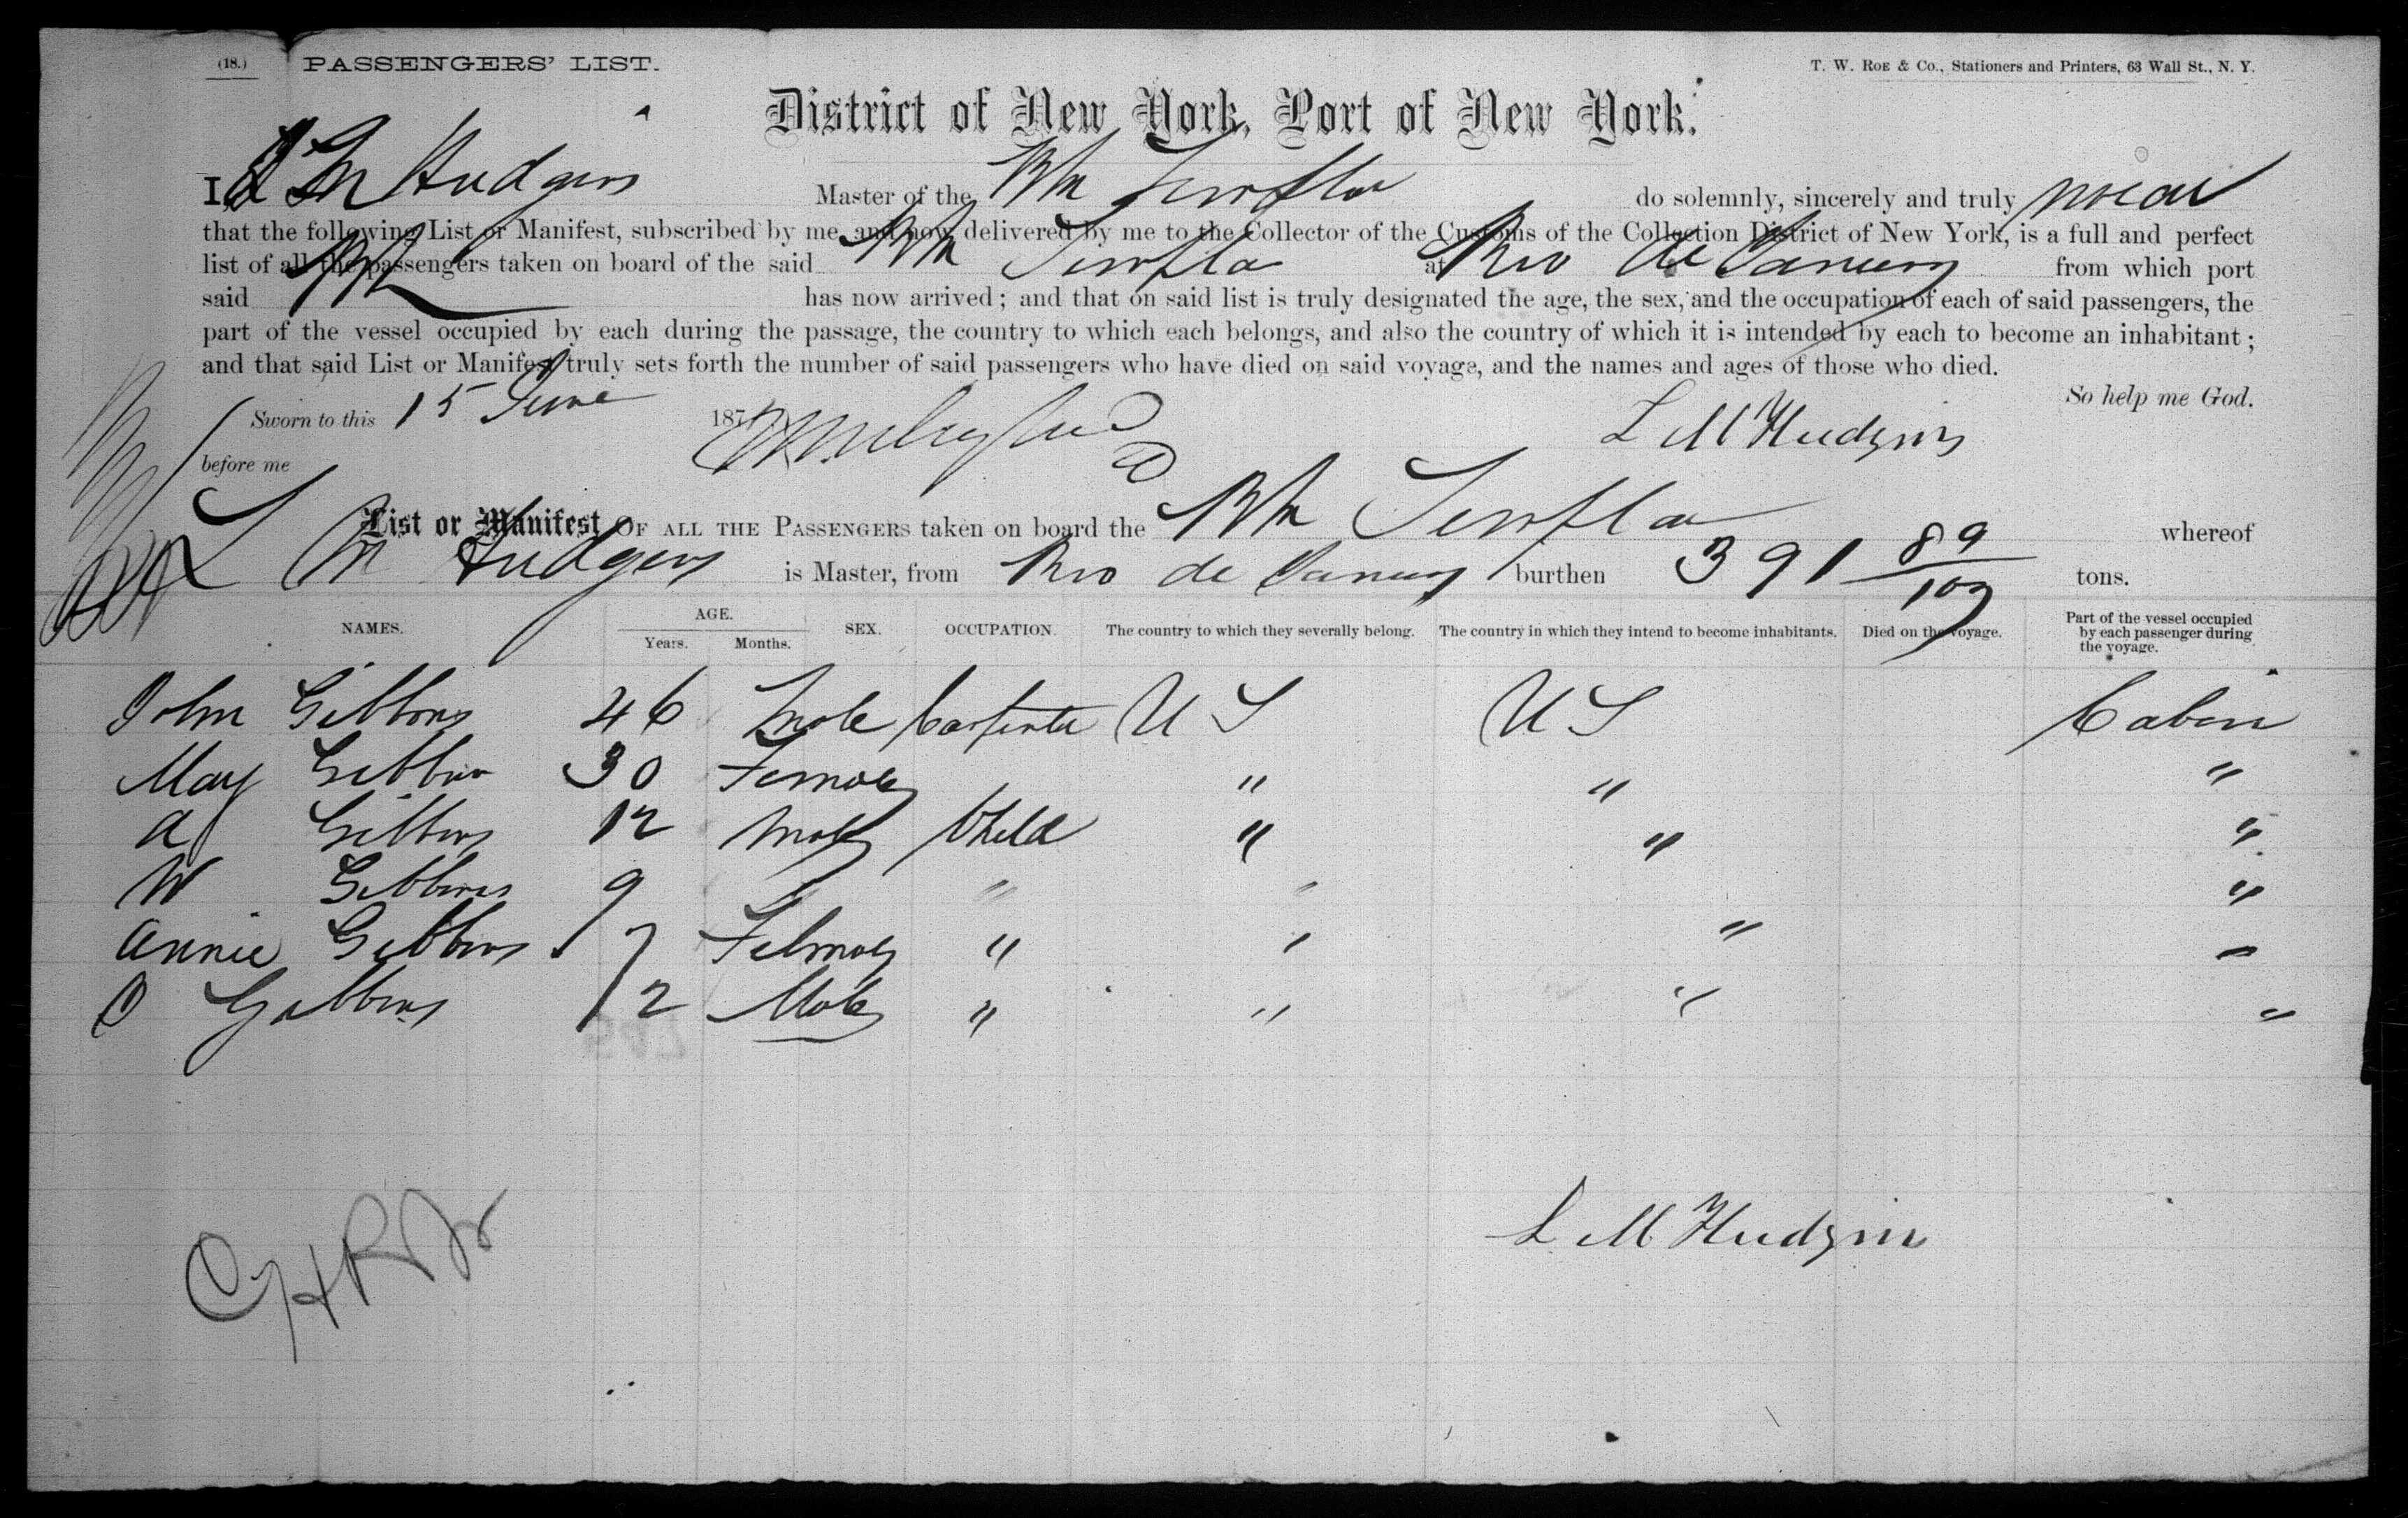 (18.) PASSENGERS' LIST. T. W. Roe & Co., Stationers and Printers, 63 Wall St., N. Y.
District of New York, Port of New York.
I, L M Hudgins Master of the do solemnly, sincerely and truly swear
that the following List or Manifest, subscribed by me and now delivered by me to the Collector of the Customs of the Collection District of New York, is a full and perfect
list of all the passengers taken on board of the said at Rio de Janeiro from which port
said has now arrived; and that on said list is truly designated the age, the sex, and the occupation of each of said passengers, the
part of the vessel occupied by each during the passage, the country to which each belongs, and also the country of which it is intended by each to become an inhabitant;
and that said List or Manifest truly sets forth the number of said passengers who have died on said voyage, and the names and ages of those who died.
So help me God.
Sworn to this 15 June 187
L M Hudgins
before me
List or Manifest OF ALL THE PASSENGERS taken on board the whereof
L M Hudgins is Master, from Rio de Janeiro burthen 391 89/100 tons.
NAMES. AGE. Years. Months. SEX. OCCUPATION. The country to which they severally belong. The country in which they intend to become inhabitants. Died on the voyage. Part of the vessel occupied by each passenger during the voyage.
John Gibbons 46 Male Carpenter U S U S Cabin
May Gibbons 30 Female " " "
A Gibbons 12 Male Child " " "
W Gibbons 9 " " "
Annie Gibbons 7 Female " " " "
Gibbons 12 Male " " " "
L M Hudgins